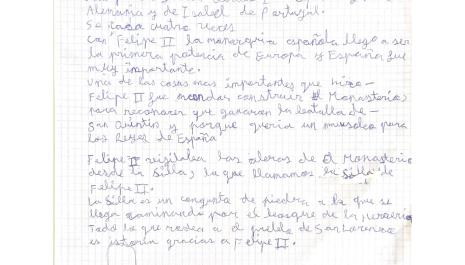 Alemania y de Isabel de Portugal.
Se casa cuatro veces.
Con Felipe II la monarquia española llego a ser
la primera potencia de Europa y España fue
muy importante.
Una de las cosas mas importantes que hizo
Felipe II fue mandar construir el Monasterio,
para reconocer que ganaran la batalla de
San Quintin y porque queria un mausoleo para
los Reyes de España
Felipe II visitaba las obras de el Monasterio
desde la Silla, la que llamamos la Silla de
Felipe II.
La Silla es un conjunto de piedra a la que se
llega caminando por el bosque de la
Todo lo que rodea a el pueblo de San Lorenzo
es historia gracias a Felipe II.